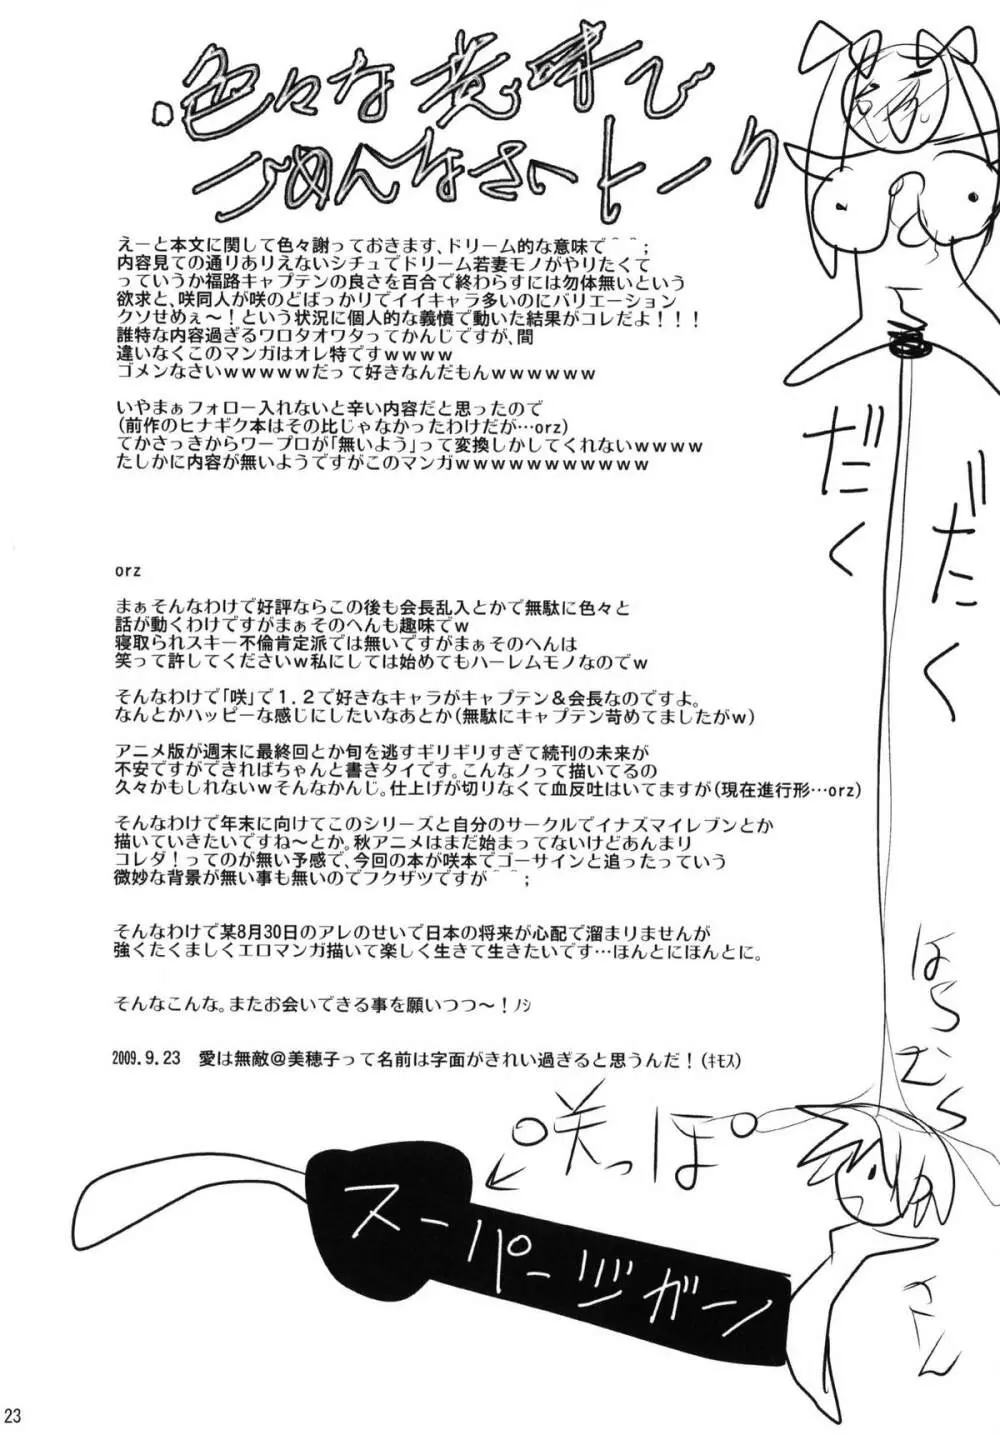 色々な意味で
ごめんなさいトーク
えーと本文に関して色々謝っておきます、ドリーム的な意味で＾＾；
内容見ての通りありえないシチュでドリーム若妻モノがやりたくて
っていうか福路キャプテンの良さを百合で終わらすには勿体無いという
欲求と、咲同人が咲のどばっかりでイイキャラ多いのにバリエーション
クソせめぇ～！という状況に個人的な義憤で動いた結果がコレだよ！！！
誰特な内容過ぎるワロタオワタってかんじですが、間
違いなくこのマンガはオレ特ですｗｗｗｗ
ゴメンなさいｗｗｗｗｗだって好きなんだもんｗｗｗｗｗｗ
いやまぁフォロー入れないと辛い内容だと思ったので
(前作のヒナギク本はその比じゃなかったわけだが…orz)
てかさっきからワープロが「無いよう」って変換しかしてくれないｗｗｗｗ
たしかに内容が無いようですがこのマンガｗｗｗｗｗｗｗｗｗｗｗ
orz
まぁそんなわけで好評ならこの後も会長乱入とかで無駄に色々と
話が動くわけですがまぁそのへんも趣味でｗ
寝取られスキー不倫肯定派では無いですがまぁそのへんは
笑って許してくださいｗ私にしては始めてもハーレムモノなのでｗ
そんなわけで「咲」で１．２で好きなキャラがキャプテン＆会長なのですよ。
なんとかハッピーな感じにしたいなあとか(無駄にキャプテン苛めてましたがｗ)
アニメ版が週末に最終回とか旬を逃すギリギリすぎて続刊の未来が
不安ですができればちゃんと書きタイです。こんなノって描いてるの
久々かもしれないｗそんなかんじ。仕上げが切りなくて血反吐はいてますが(現在進行形…orz)
そんなわけで年末に向けてこのシリーズと自分のサークルでイナズマイレブンとか
描いていきたいですね～とか。秋アニメはまだ始まってないけどあんまり
コレダ！ってのが無い予感で、今回の本が咲本でゴーサインと追ったっていう
微妙な背景が無い事も無いのでフクザツですが＾＾；
そんなわけで某8月30日のアレのせいで日本の将来が心配で溜まりませんが
強くたくましくエロマンガ描いて楽しく生きて生きたいです…ほんとにほんとに。
そんなこんな。またお会いできる事を願いつつ～！ﾉｼ
2009.9.23　愛は無敵＠美穂子って名前は字面がきれい過ぎると思うんだ！(ｷﾓｽ)
だく
だく
はらむ〜
咲っぽ
スーパージガーン
23